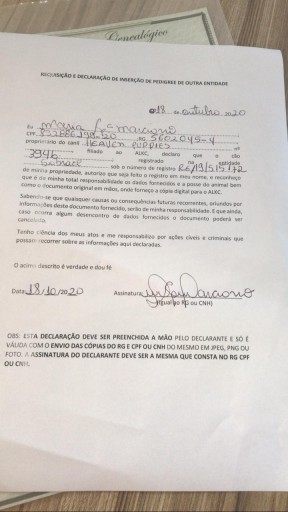 Genealógico
DECLARAÇÃO E DECLARAÇÃO DE INSERÇÃO DE PEDIGREE DE OUTRA ENTIDADE
18 de outubro 20
Eu Maria
CPF RG 5602045-4
proprietário do canil HEAVEN PUPPIES nº
3946 filiado ao ALKC, declaro que o cão
registrado na entidade
Sobraci sob o número de registro RG/19/515172
de minha propriedade, autorizo que seja feito o registro em meu nome, e reconheço
que é de minha total responsabilidade os dados fornecidos e a posse do animal bem
como o documento original em mãos, onde forneço a cópia digital para o ALKC.
Sabendo-se que quaisquer causas ou consequências futuras recorrentes, oriundos por
informações deste documento fornecido, serão de minha responsabilidade. E que ainda,
caso ocorra algum desencontro de dados fornecidos o documento poderá ser
cancelado.
Tenho ciência dos meus atos e me responsabilizo por ações cíveis e criminais que
possam recorrer sobre as informações aqui declaradas.
O acima descrito é verdade e dou fé
Data: 18/10/2020 Assinatura:
(igual ao RG ou CNH)
OBS: ESTA DECLARAÇÃO DEVE SER PREENCHIDA A MÃO PELO DECLARANTE E SÓ É
VÁLIDA COM O ENVIO DAS CÓPIAS DO RG E CPF OU CNH DO MESMO EM JPEG, PNG OU
FOTO. A ASSINATURA DO DECLARANTE DEVE SER A MESMA QUE CONSTA NO RG CPF
OU CNH.